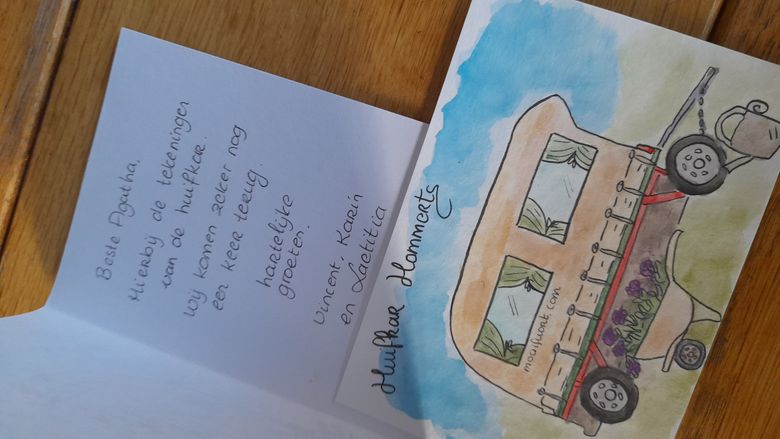 Beste Agatha,
Hierbij de tekeningen
van de huifkar.
Wij komen zeker nog
een keer terug.
hartelijke
groeten.
Vincent, Karin
en Laetitia
Huifkar Hommerts
mooifuort.com